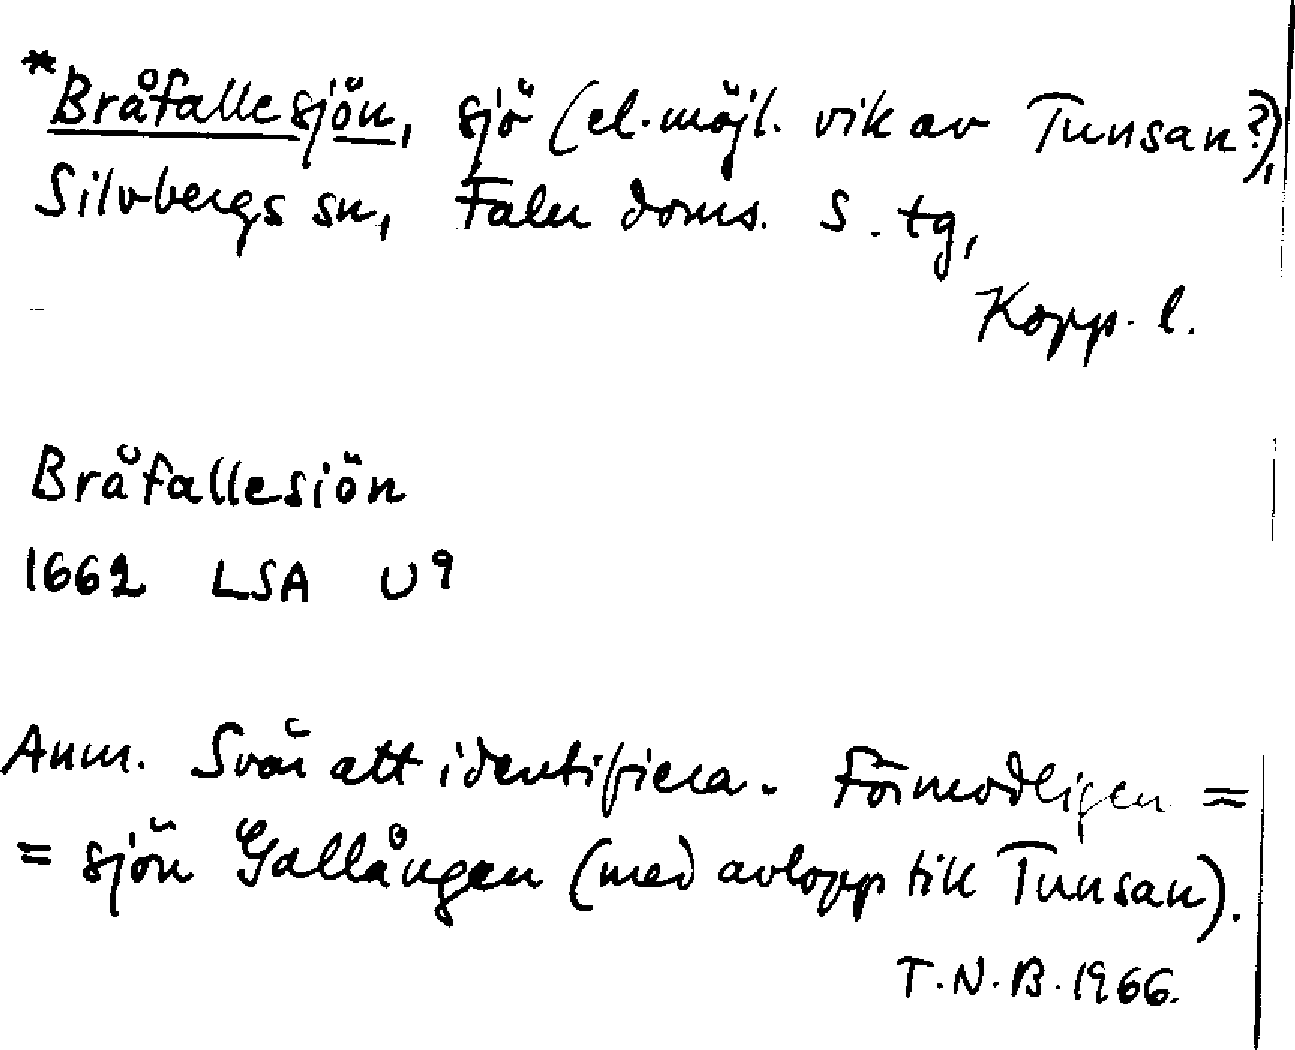 *Bråfallesjön, sjö (el. möjl. vik av Tunsan?),
Silvbergs sn, Falu doms. S. tg,
Kopp. l.
Bråfallesiön
1662 LSA U9
Anm. Svår att identifiera. Förmodligen =
= sjön Gallången (med avlopp till Tunsan).
T.N.B. 1966.